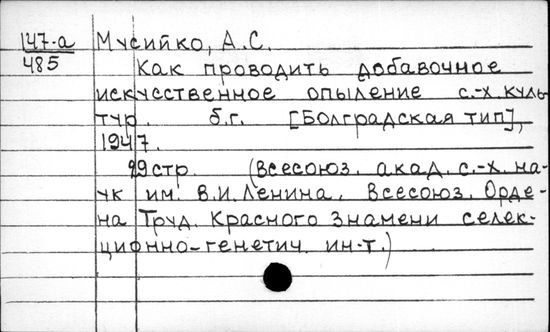 147-а Мусийко, А.С.
485
Как проводить добавочное
искусственное опыление с.-х куль-
тур. б.г. [Болградская тип],
1947.
29 стр. (Всесоюз. акад. с.-х. на-
ук им. В.И. Ленина. Всесоюз. Орде-
на Труд. Красного Знамени селек-
ционно-генетич. ин-т.)